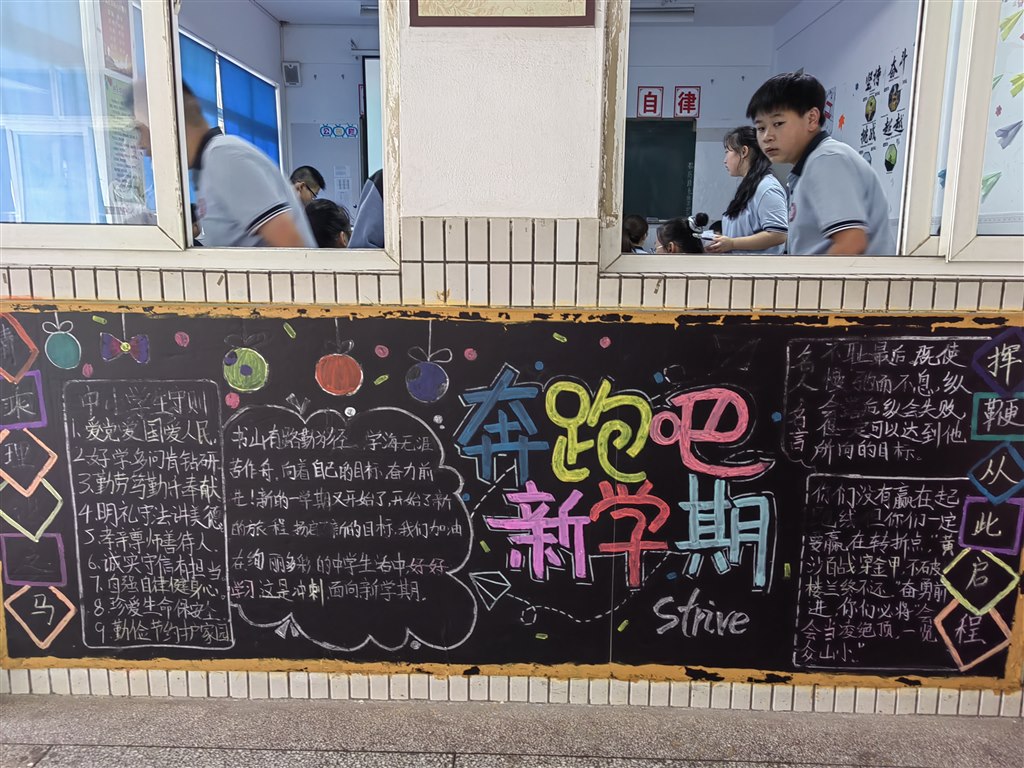 坚持 奋斗
挑战 超越
自律
奔跑吧
新学期
strive
乘
理
之
马
中小学生守则
1.爱党爱国爱人民
2.好学多问肯钻研
3.勤劳 奉献
4.明礼守法讲美德
5.孝亲尊师善待人
6.诚实守信有担当
7.自强自律健身心
8.珍爱生命保安全
9.勤俭节约护家园
书山有路勤为径 学海无涯
作舟,向着自己的目标,奋力前
进!新的一学期又开始了,开始了新
的旅程 新的目标,我们加油
在绚丽多彩的中学生活中好好
学习 这是冲刺 面向新学期.
名人名言
不耻最后,既使
慢 而不息,纵
会 后 纵会失败,
可以达到他
所向的目标.
你们没有赢在起
你们一定
要赢在转折点"黄
沙百战穿金甲,不破
楼兰终不还"奋勇前
进,你们必将"会
当凌绝顶,一览
众山小."
挥
鞭
从
此
启
程